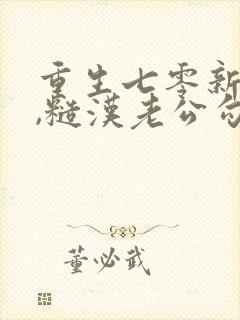 重生七零新
,糙汉老公勾
董必武